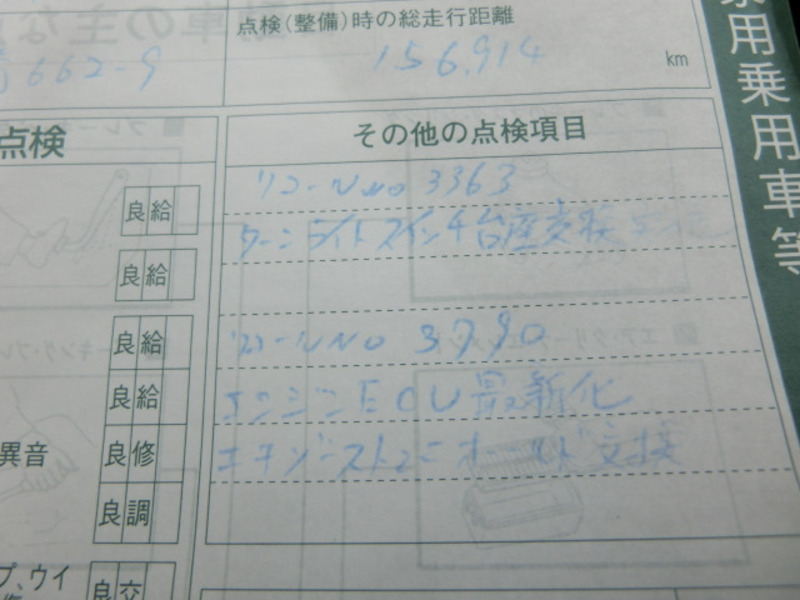 点検(整備)時の総走行距離
662-9
156,914 km
乗用乗用車等
点検
その他の点検項目
リコールNo 3363
良 給
ターンライトスイッチ台座交換
良 給
良 給
リコールNo 3790
良 給
エンジンECU最新化
異音
良 修
エキゾーストマニホールド交換
良 調
プ、ウイ
良 交